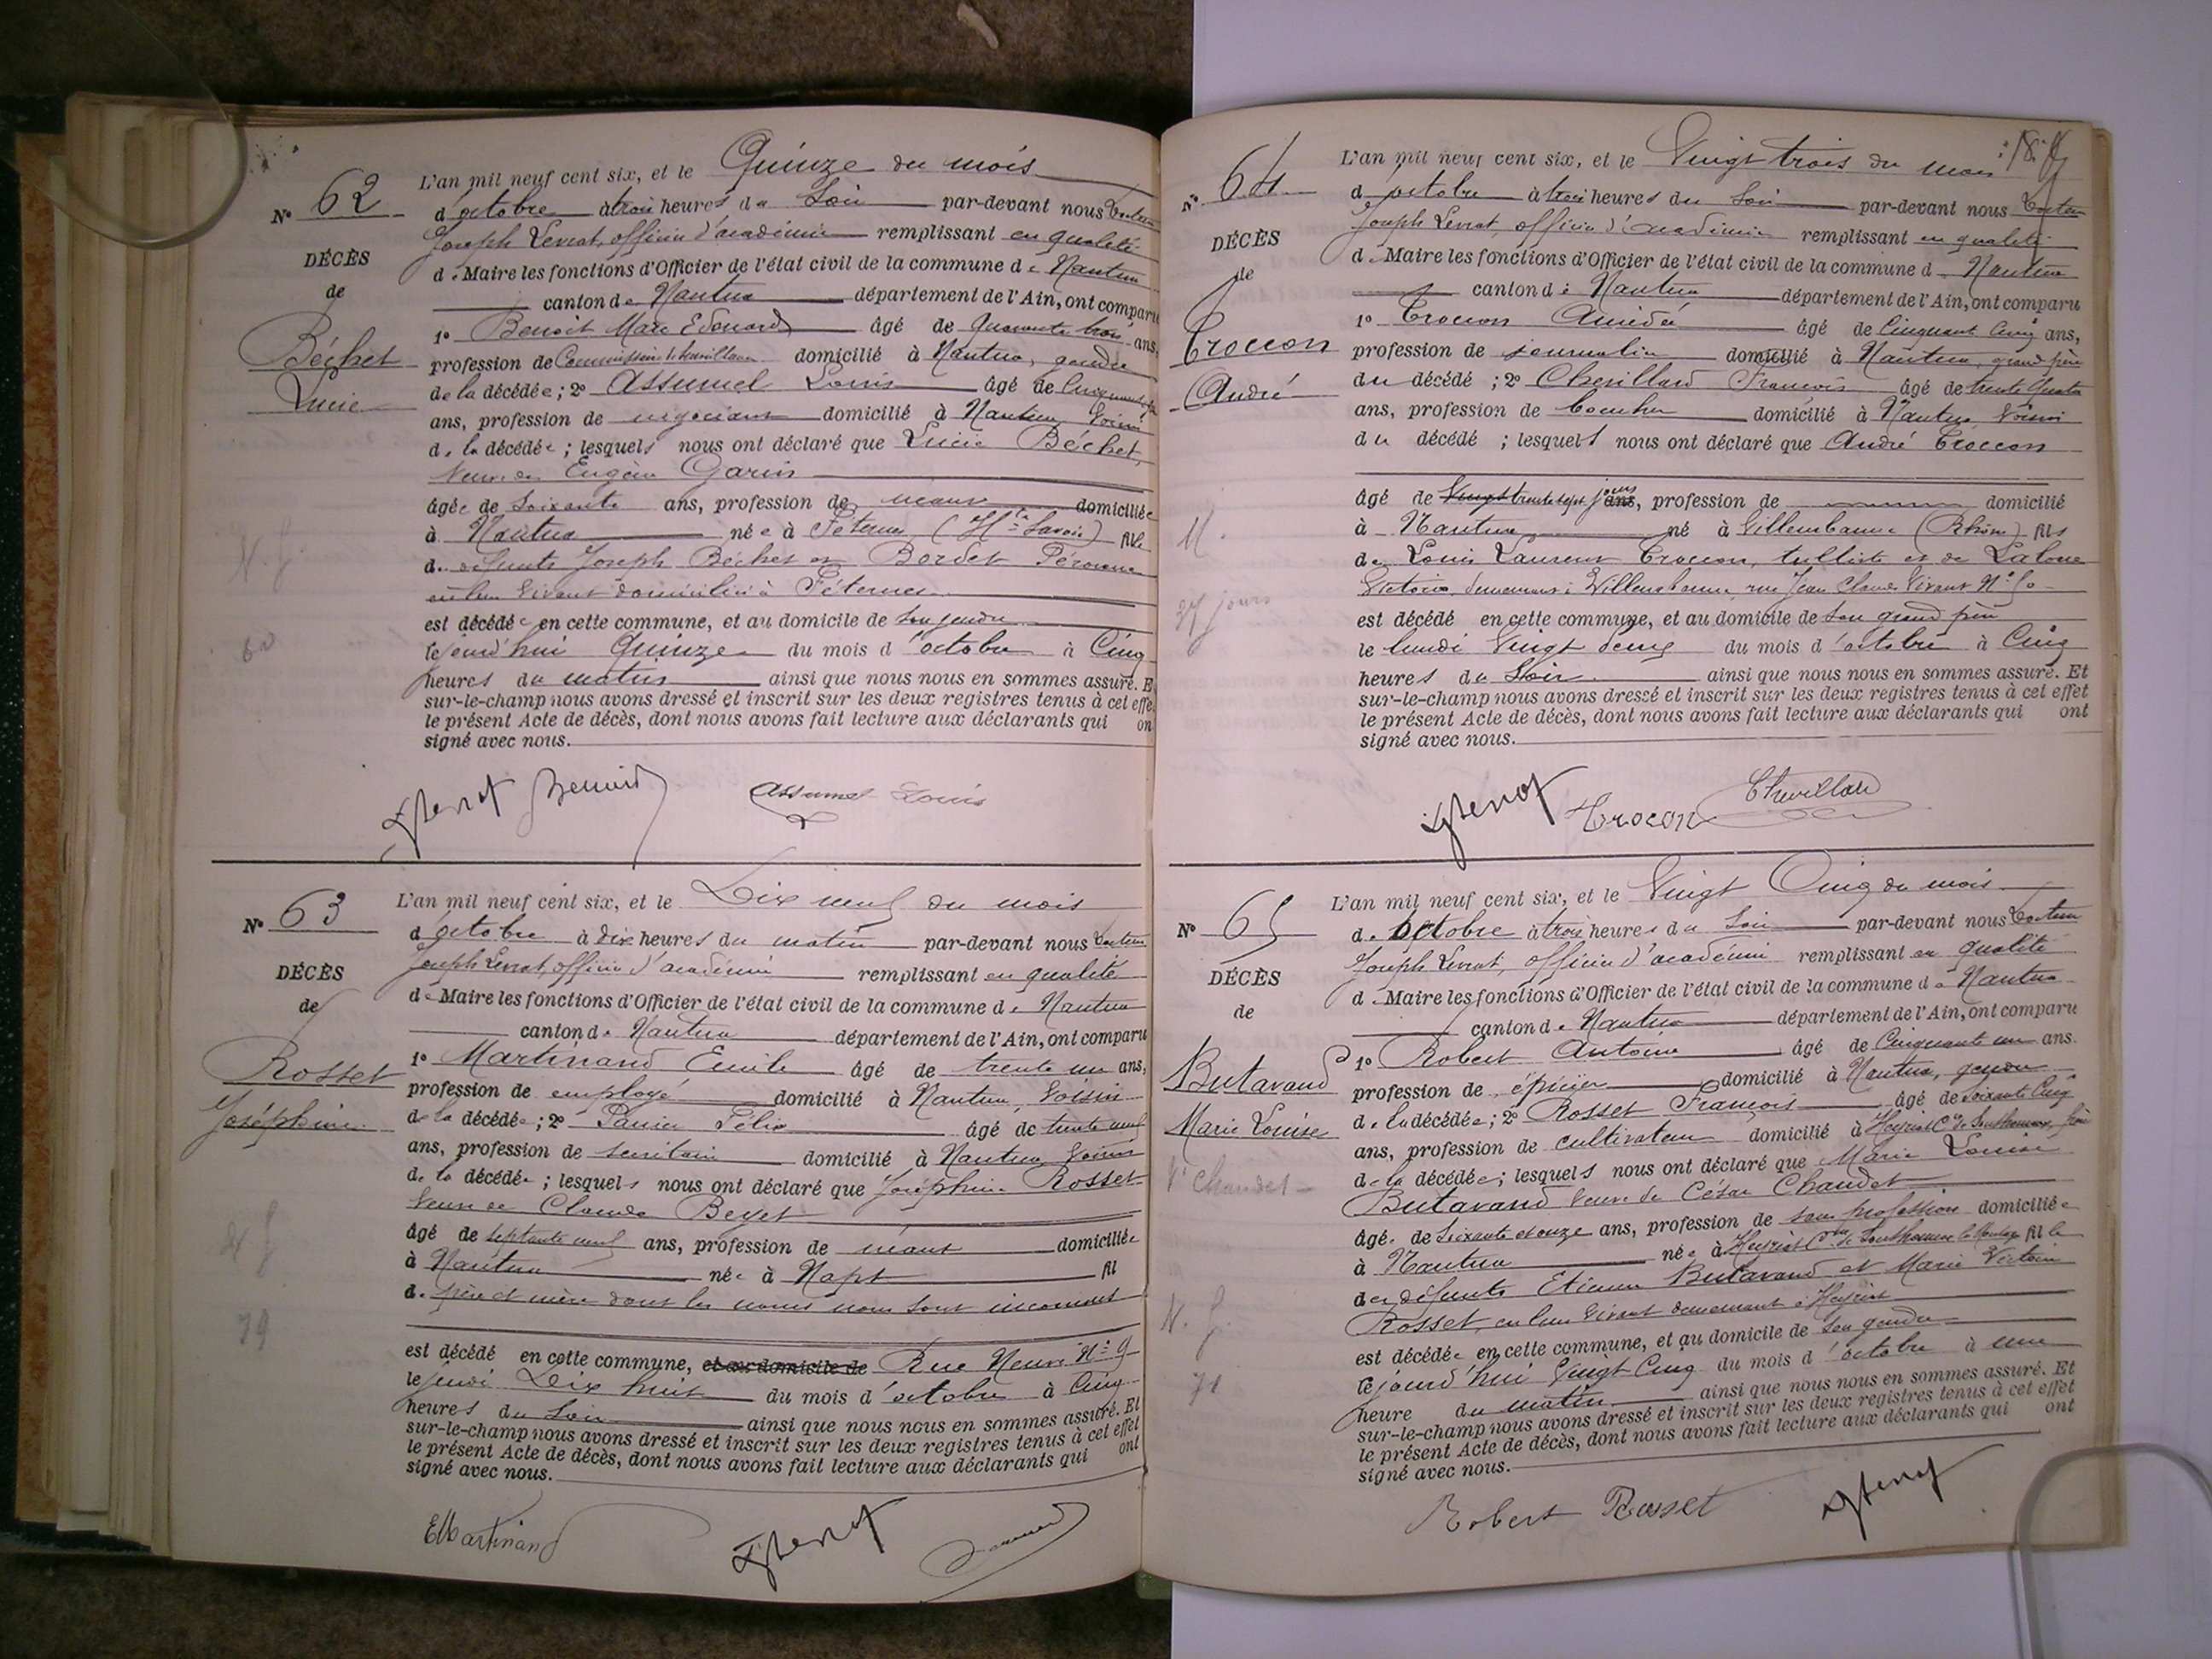 L'an mil neuf cent six, et le Quinze du mois
N° 62
d'octobre à trois heures du Soir par-devant nous Docteur
Joseph Levrat, officier d'académie remplissant en qualité
DÉCÈS
de Maire les fonctions d'Officier de l'état civil de la commune de Nantua
de
canton de Nantua département de l'Ain, ont comparu
1° Benoit Marc Edouard âgé de quarante trois ans,
Béchet
profession de domicilié à Nantua, gendre
Lucie
de la décédée ; 2° Assumel Louis âgé de
ans, profession de négociant domicilié à Nantua voisin
de la décédée ; lesquels nous ont déclaré que Lucie Béchet,
Veuve de Eugène Garin
âgée de soixante ans, profession de néant domiciliée
à Nantua née à Féternes (Hte Savoie) fille
N. J.
de défunts Joseph Béchet et Bordet Péronne
en leur vivant domiciliés à Féternes
est décédée en cette commune, et au domicile de son gendre
60
le jourd'hui Quinze du mois d'octobre à Cinq
heures du matin ainsi que nous nous en sommes assuré. E
sur-le-champ nous avons dressé et inscrit sur les deux registres tenus à cet effe
le présent Acte de décès, dont nous avons fait lecture aux déclarants qui on
signé avec nous.
Benoit Assumel Louis
L'an mil neuf cent six, et le Dix neuf du mois
N° 63
d'octobre à dix heures du matin par-devant nous Docteur
Joseph Levrat, officier d'académie remplissant en qualité
DÉCÈS
de Maire les fonctions d'Officier de l'état civil de la commune de Nantua
de
canton de Nantua département de l'Ain, ont comparu
Rosset
1° Martinand Emile âgé de trente un ans,
profession de employé domicilié à Nantua, voisin
Joséphine
de la décédée ; 2° Panier Félix âgé de trente neuf
ans, profession de secrétaire domicilié à Nantua voisin
de la décédée ; lesquels nous ont déclaré que Joséphine Rosset
Veuve de Claude Beyet
âgé de septante neuf ans, profession de néant domiciliée
à Nantua née à Napt fil
de père et mère dont les noms nous sont inconnus
79
est décédé en cette commune, et au domicile de Rue Neuve N° 9
le jeudi Dix huit du mois d'octobre à Cinq
heures du soir ainsi que nous nous en sommes assuré. Et
sur-le-champ nous avons dressé et inscrit sur les deux registres tenus à cet effet
le présent Acte de décès, dont nous avons fait lecture aux déclarants qui ont
signé avec nous.
EMartinand
L'an mil neuf cent six, et le Vingt trois du mois
N° 64
d'octobre à trois heures du Soir par-devant nous Docteur
Joseph Levrat, officier d'académie remplissant en qualité
DÉCÈS
de Maire les fonctions d'Officier de l'état civil de la commune de Nantua
de
canton de Nantua département de l'Ain, ont comparu
Croccon
1° Croccon Amédée âgé de Cinquante Cinq ans,
profession de journalier domicilié à Nantua, grand père
André
du décédé ; 2° Chevillard François âgé de trente quatre
ans, profession de boucher domicilié à Nantua voisin
du décédé ; lesquels nous ont déclaré que André Croccon
âgé de Vingt trente sept jours ans, profession de domicilié
M.
à Nantua né à Villeurbanne (Rhône) fils
de Louis Laurent Croccon, tulliste et de Laloue
37 jours
Victoire, demeurant à Villeurbanne, rue Jean Claude Vivant N° 50
est décédé en cette commune, et au domicile de son grand père
le lundi Vingt deux du mois d'octobre à Cinq
heures du Soir ainsi que nous nous en sommes assuré. Et
sur-le-champ nous avons dressé et inscrit sur les deux registres tenus à cet effet
le présent Acte de décès, dont nous avons fait lecture aux déclarants qui ont
signé avec nous.
Crocon Chevillard
L'an mil neuf cent six, et le Vingt Cinq du mois
N° 65
d'octobre à trois heures du Soir par-devant nous Docteur
Joseph Levrat, officier d'académie remplissant en qualité
DÉCÈS
de Maire les fonctions d'Officier de l'état civil de la commune de Nantua
de
canton de Nantua département de l'Ain, ont comparu
Butavand
1° Robert Antoine âgé de Cinquante un ans.
profession de épicier domicilié à Nantua, gendre
Marie Louise
de la décédée ; 2° Rosset François âgé de soixante cinq
ans, profession de cultivateur domicilié à Heyriat
Ve Chaudet
de la décédée ; lesquels nous ont déclaré que Marie Louise
Butavand veuve de César Chaudet
âgée de soixante et onze ans, profession de sans profession domiciliée
à Nantua née à Heyriat fille
des défunts Etienne Butavand et Marie Victoire
Rosset, en leur vivant demeurant à Heyriat
est décédée en cette commune, et au domicile de son gendre
71
le jourd'hui Vingt Cinq du mois d'octobre à une
heure du matin ainsi que nous nous en sommes assuré. Et
sur-le-champ nous avons dressé et inscrit sur les deux registres tenus à cet effet
le présent Acte de décès, dont nous avons fait lecture aux déclarants qui ont
signé avec nous.
Robert Rosset